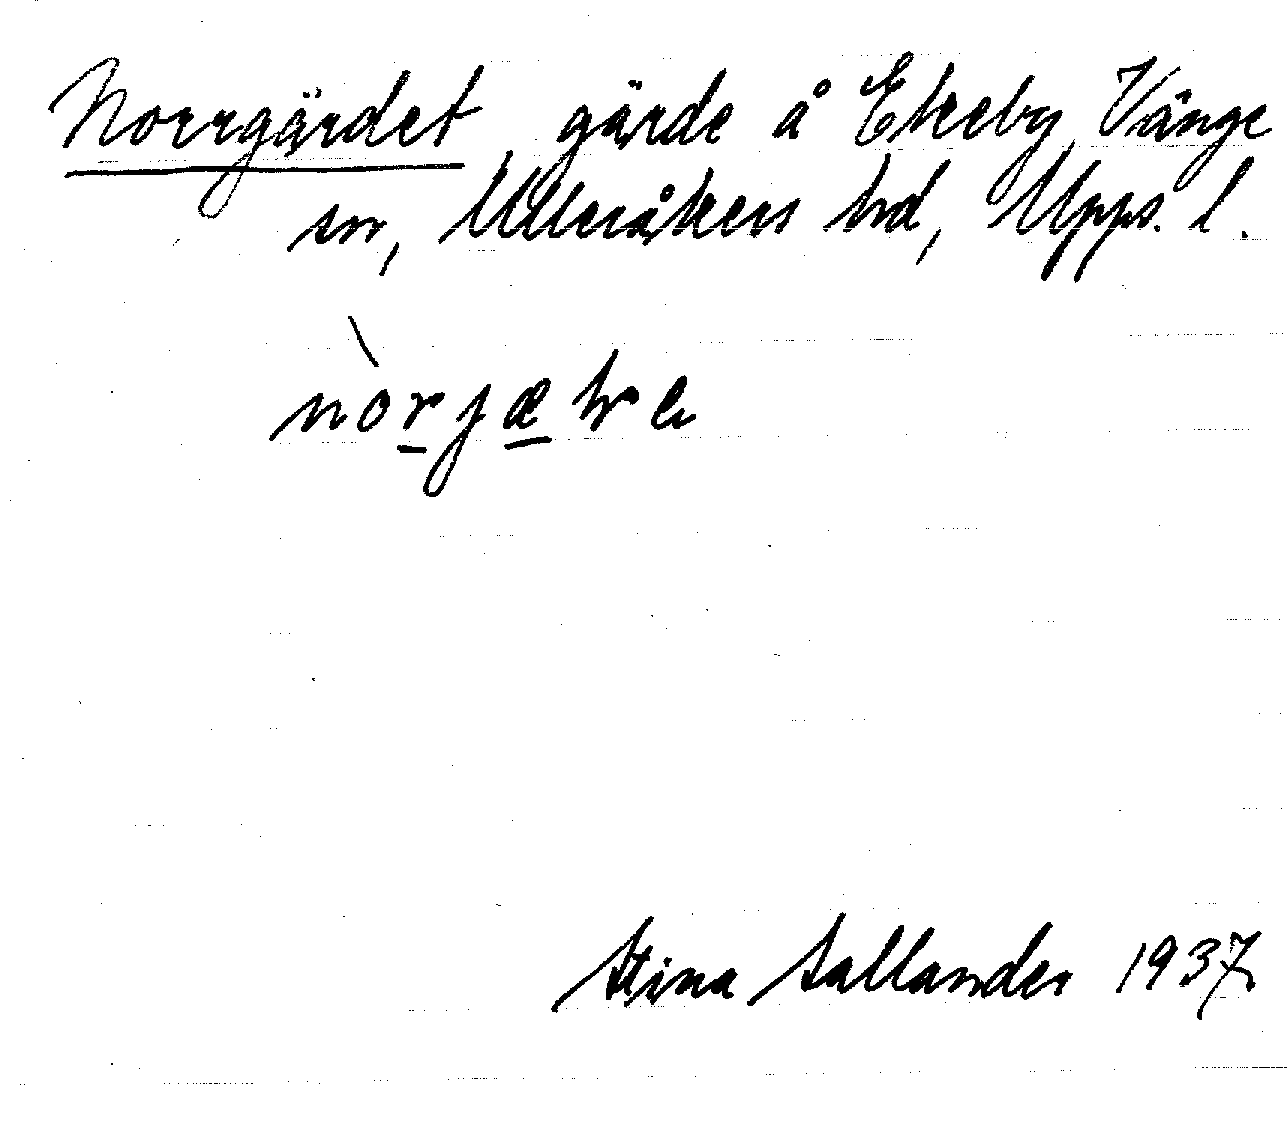 Norrgärdet gärde å Ekeby, Vänge
sn, Ulleråkers hd, Upps. l.
Stina Sallander 1937